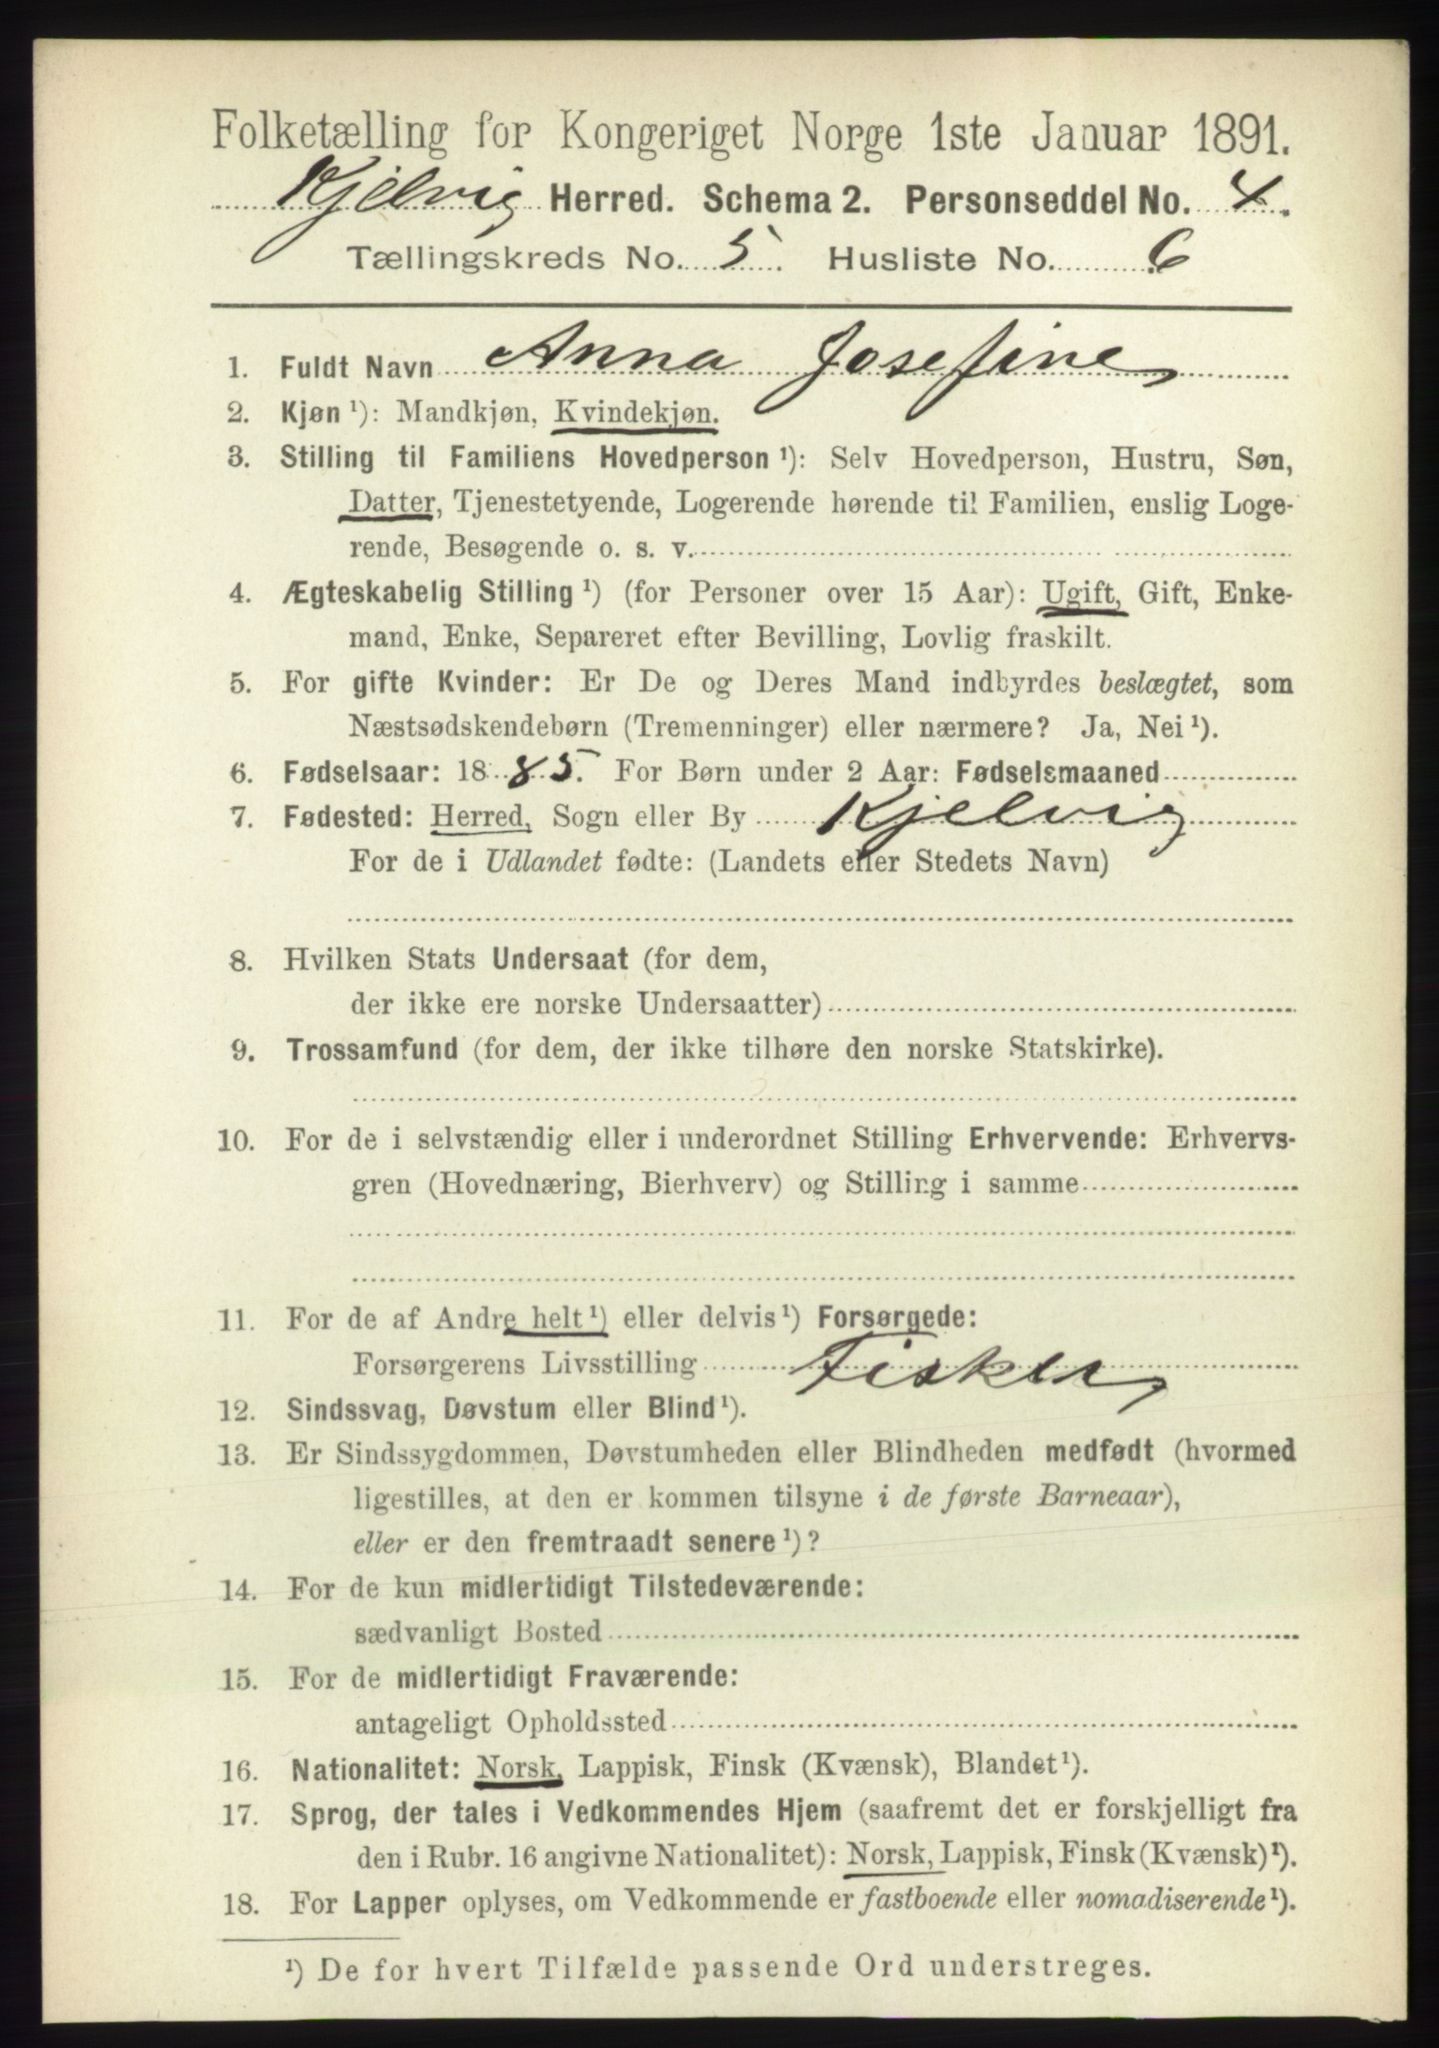 Folketælling for Kongeriget Norge 1ste Januar 1891.
Kjelvig Herred. Schema 2. Personseddel No. 4.
Tællingskreds No. 5. Husliste No. 6
1. Fuldt Navn Anna Josefine
2. Kjøn ¹): Mandkjøn, Kvindekjøn.
3. Stilling til Familiens Hovedperson ¹): Selv Hovedperson, Hustru, Søn,
Datter, Tjenestetyende, Logerende hørende til Familien, enslig Loge-
rende, Besøgende o. s. v.
4. Ægteskabelig Stilling ¹) (for Personer over 15 Aar): Ugift, Gift, Enke-
mand, Enke, Separeret efter Bevilling, Lovlig fraskilt.
5. For gifte Kvinder: Er De og Deres Mand indbyrdes beslægtet, som
Næstsødskendebørn (Tremenninger) eller nærmere? Ja, Nei ¹).
6. Fødselsaar: 1885. For Børn under 2 Aar: Fødselsmaaned
7. Fødested: Herred, Sogn eller By Kjelvig
For de i Udlandet fødte: (Landets eller Stedets Navn)
8. Hvilken Stats Undersaat (for dem,
der ikke ere norske Undersaatter)
9. Trossamfund (for dem, der ikke tilhøre den norske Statskirke).
10. For de i selvstændig eller i underordnet Stilling Erhvervende: Erhvervs-
gren (Hovednæring, Bierhverv) og Stilling i samme
11. For de af Andre helt ¹) eller delvis ¹) Forsørgede:
Forsørgerens Livsstilling Fisker
12. Sindssvag, Døvstum eller Blind ¹).
13. Er Sindssygdommen, Døvstumheden eller Blindheden medfødt (hvormed
ligestilles, at den er kommen tilsyne i de første Barneaar),
eller er den fremtraadt senere ¹)?
14. For de kun midlertidigt Tilstedeværende:
sædvanligt Bosted
15. For de midlertidigt Fraværende:
antageligt Opholdssted
16. Nationalitet: Norsk, Lappisk, Finsk (Kvænsk), Blandet ¹).
17. Sprog, der tales i Vedkommendes Hjem (saafremt det er forskjelligt fra
den i Rubr. 16 angivne Nationalitet): Norsk, Lappisk, Finsk (Kvænsk) ¹).
18. For Lapper oplyses, om Vedkommende er fastboende eller nomadiserende ¹).
¹) De for hvert Tilfælde passende Ord understreges.